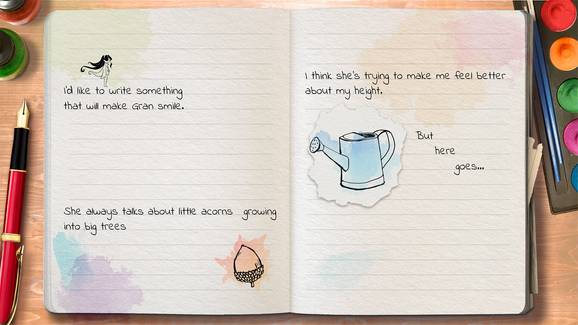 I'd like to write something
that will make Gran smile.
She always talks about little acorns growing
into big trees
I think she's trying to make me feel better
about my height.
But
here
goes...